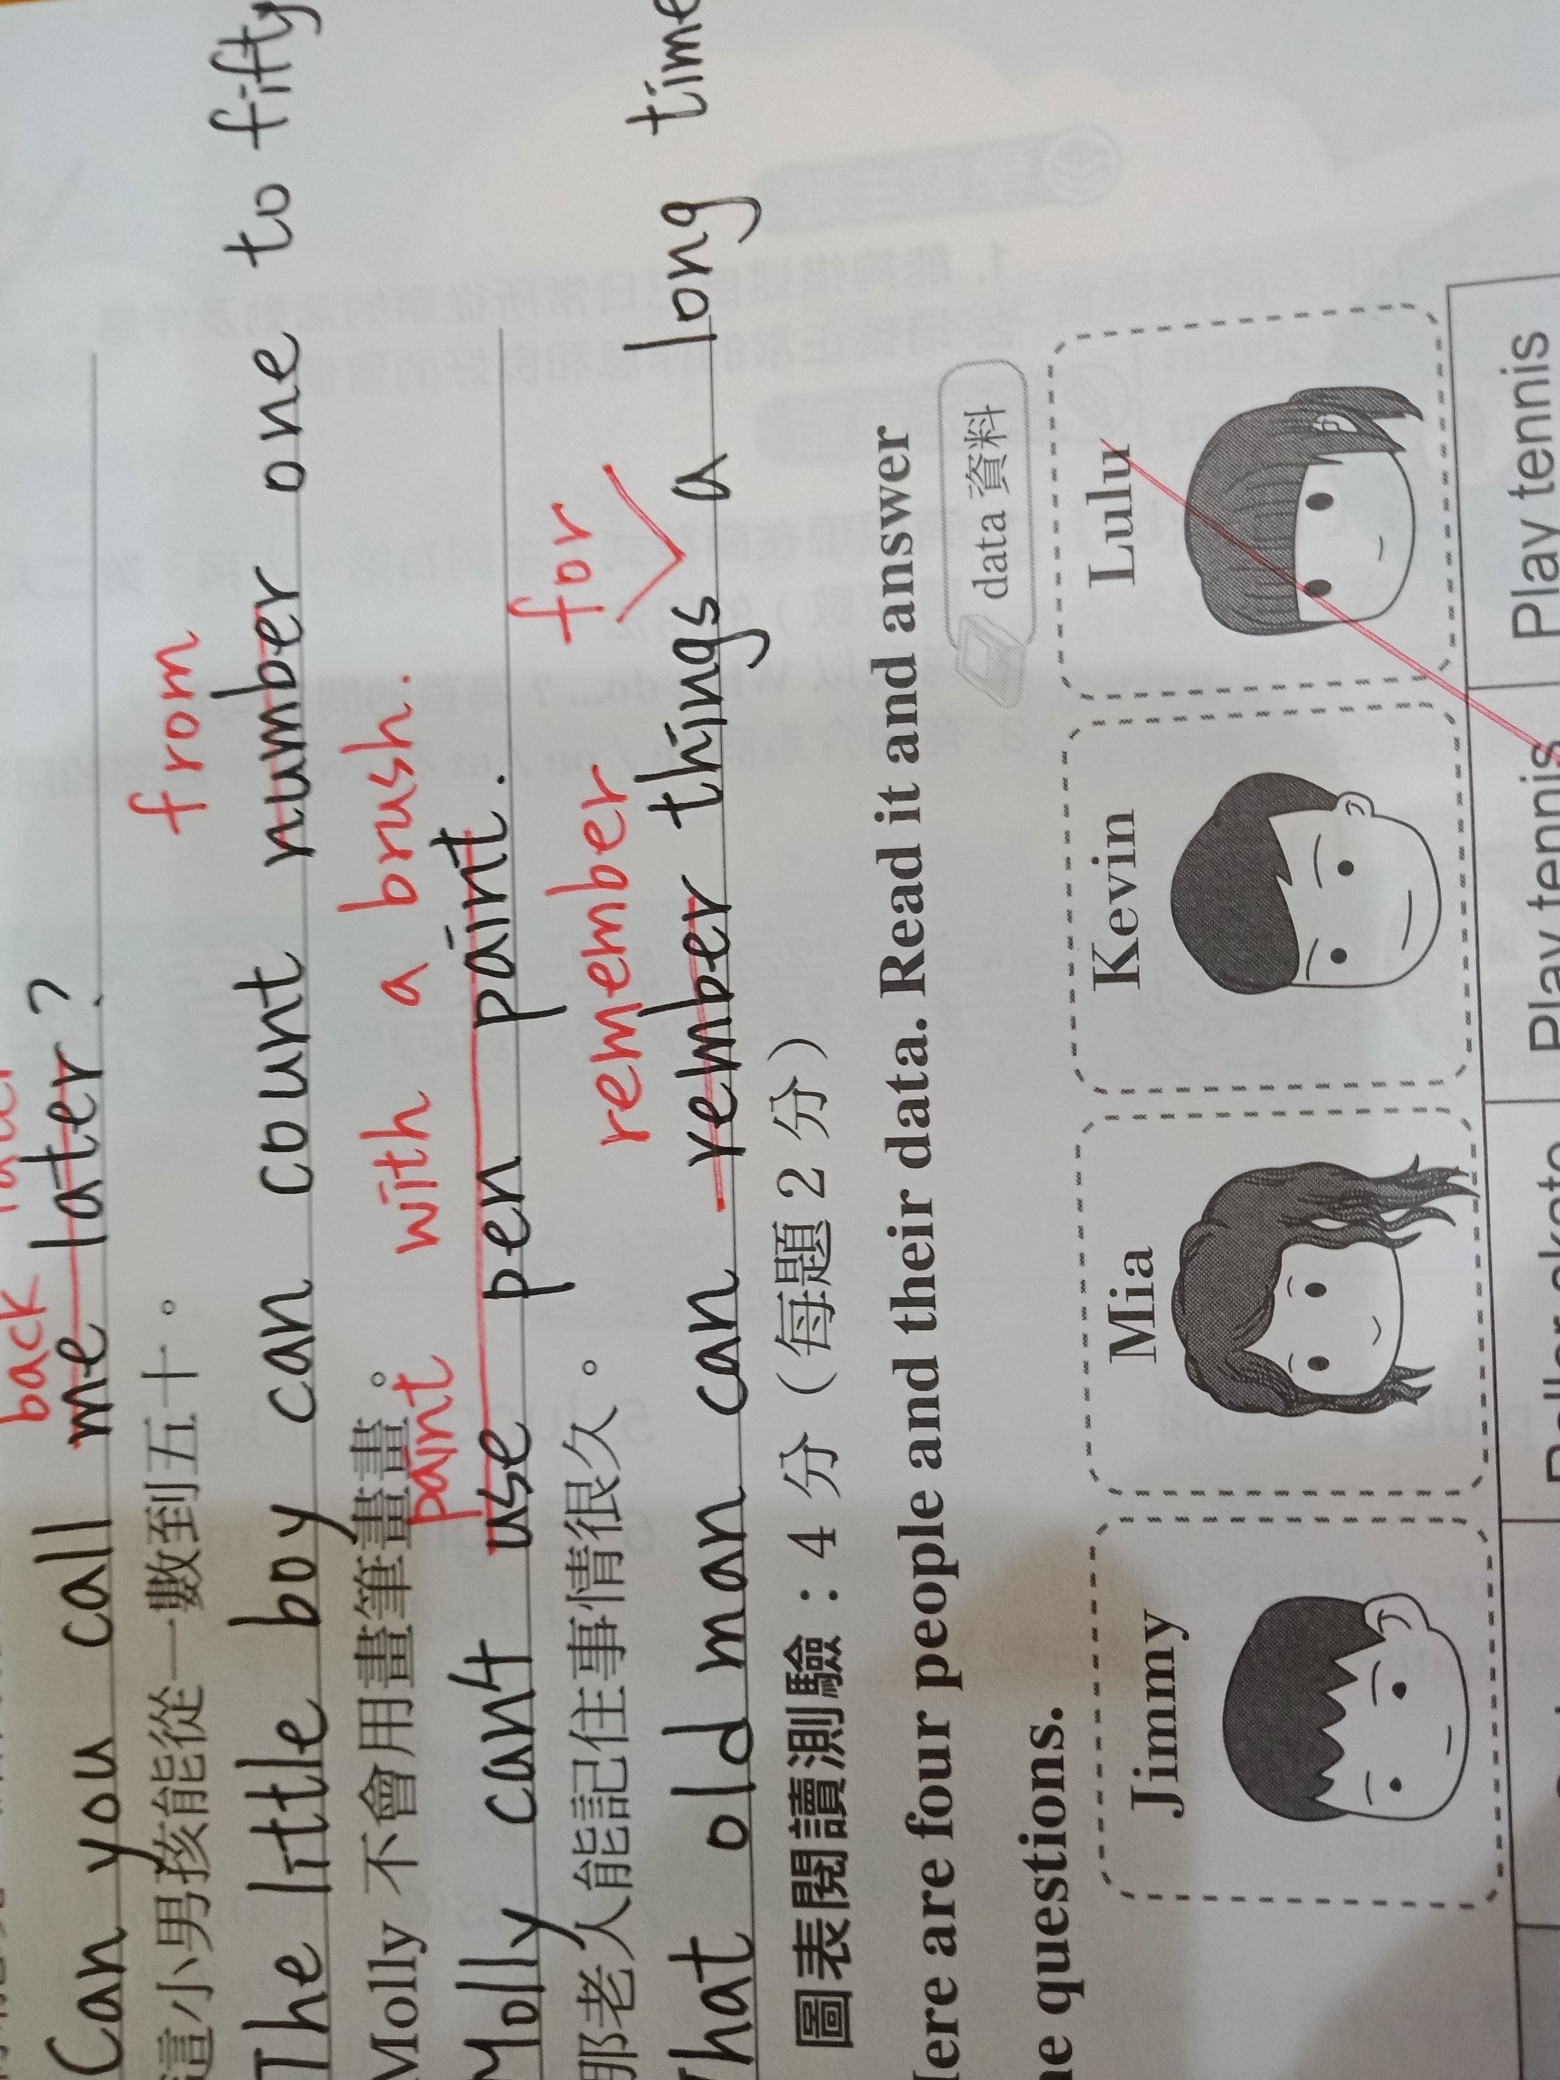 back
Can you call me later?
這小男孩能從一數到五十。
from
The little boy can count number one to fifty
Molly 不會用畫筆畫畫。
paint with a brush.
Molly can't use pen paint.
那老人能記住事情很久。
remember for
That old man can rember things a long time
圖表閱讀測驗：4 分（每題 2 分）
Here are four people and their data. Read it and answer
the questions.
data 資料
Jimmy Mia Kevin Lulu
Play tennis Play tennis